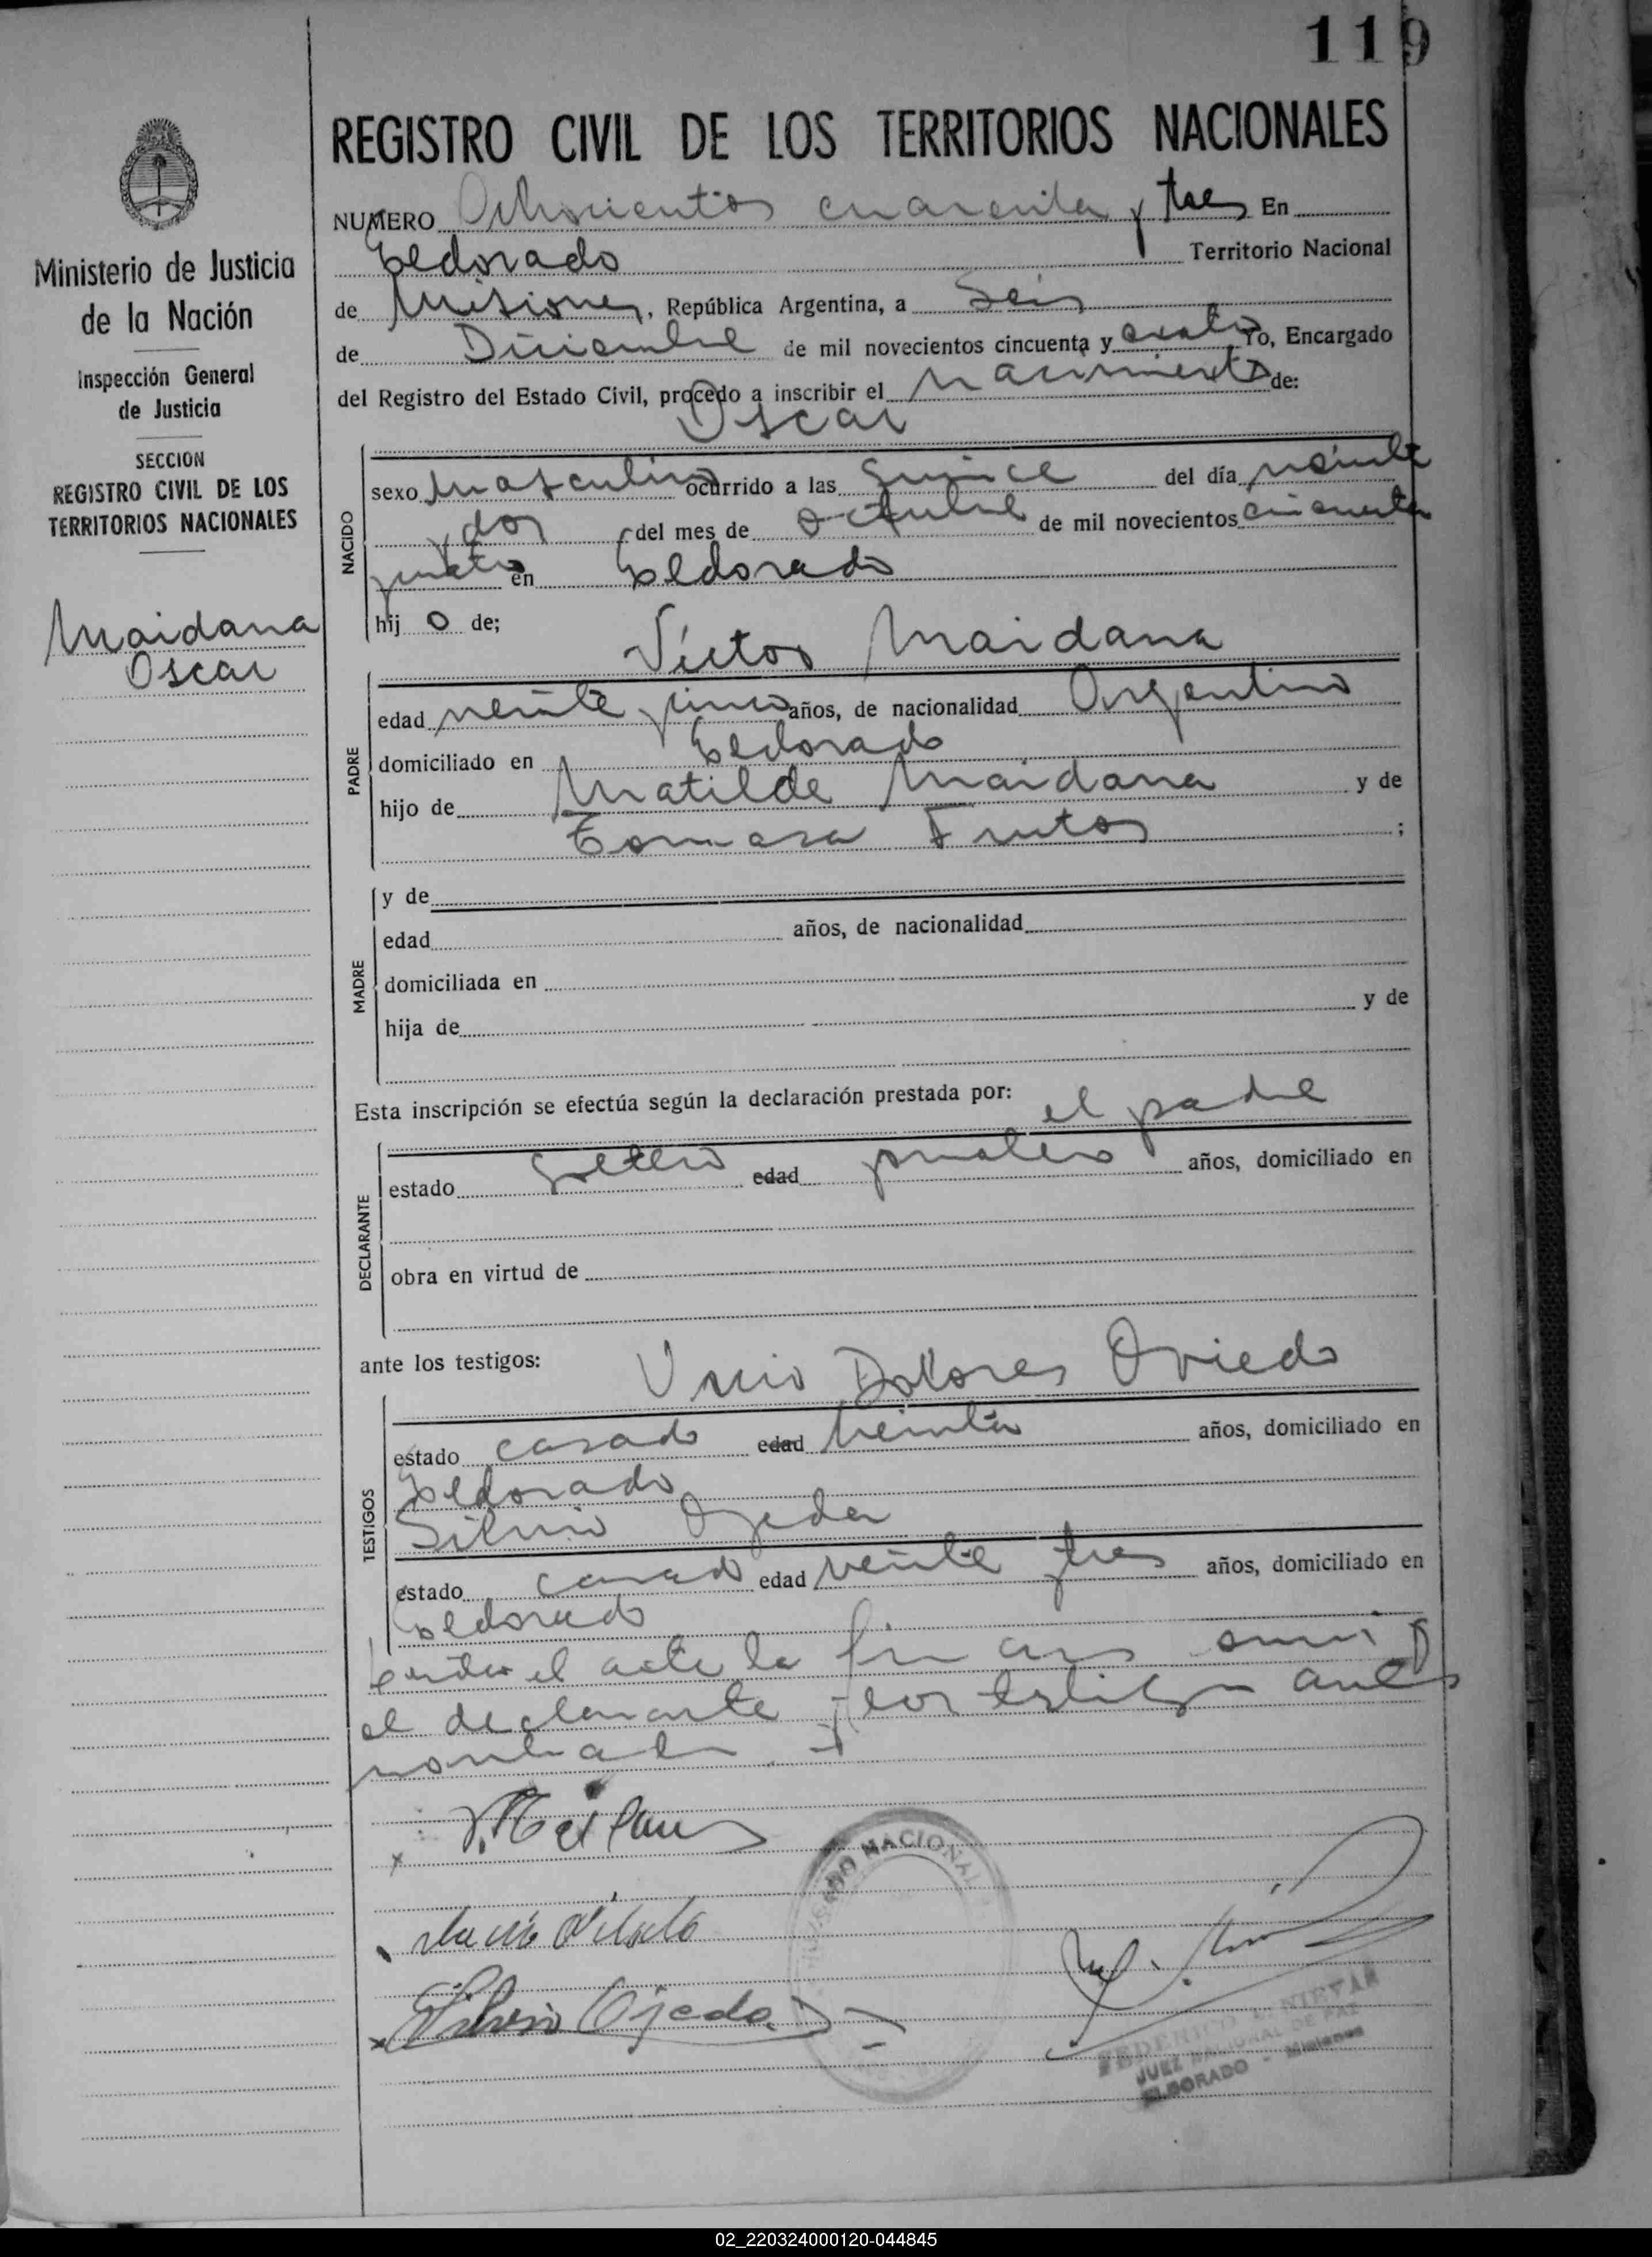 119
REGISTRO CIVIL DE LOS TERRITORIOS NACIONALES
Ministerio de Justicia
de la Nación
Inspección General
de Justicia
SECCION
REGISTRO CIVIL DE LOS
TERRITORIOS NACIONALES
Maidana
Oscar
NUMERO Ochocientos cuarenta y tres En
Eldorado Territorio Nacional
de Misiones, República Argentina, a Seis
de Diciembre de mil novecientos cincuenta y cuatro Yo, Encargado
del Registro del Estado Civil, procedo a inscribir el Nacimiento de:
Oscar
NACIDO
sexo Masculino ocurrido a las quince del día veinte
y dos del mes de Octubre de mil novecientos cincuenta
y cuatro en Eldorado
hij o de;
Víctor Maidana
PADRE
edad veinte y cinco años, de nacionalidad Argentino
domiciliado en Eldorado
hijo de Matilde Maidana y de
Tomasa Frutos ;
MADRE
y de
edad años, de nacionalidad
domiciliada en
hija de y de
Esta inscripción se efectúa según la declaración prestada por:
el padre
DECLARANTE
estado soltero edad años, domiciliado en
obra en virtud de
ante los testigos:
Dolores Oviedo
TESTIGOS
estado casado edad treinta años, domiciliado en
Eldorado
Silvio Ojeda
estado casado edad veinte y tres años, domiciliado en
Eldorado
el acta la
el declarante y los testigos antes
Silverio Ojeda
JUZGADO NACIONAL
FEDERICO
JUEZ NACIONAL DE PAZ
ELDORADO - Misiones
02_220324000120-044845